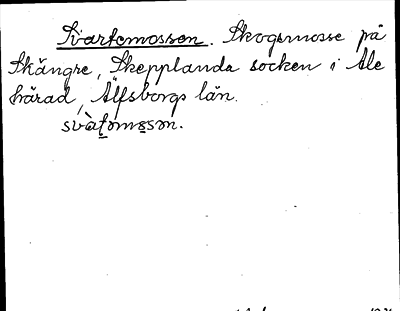 Svartemossen. Skogsmosse på
Skångre, Skepplanda socken i Ale
härad, Älfsborgs län.
svàt̠əmo̠sən.